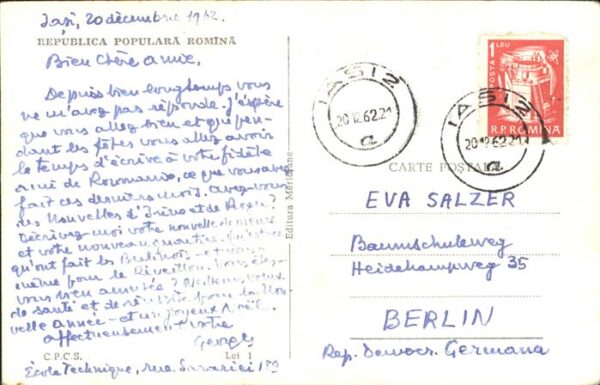 Iași, 20 décembre 1962.
REPUBLICA POPULARĂ ROMÎNĂ
Bien chère amie,
Depuis bien longtemps vous
ne m'avez pas répondu. J'éspère
que vous allez bien et que pen-
dant les fêtes vous allez avoir
le temps d'écrire à votre fidèle
ami de Roumanie, ce que vous avez
fait ces derniers mois. Avez-vous
des nouvelles d'Irène et de
Décrivez-moi votre nouvelle demeure
et votre nouveau quartier.
qu'ont fait les
même pour le Réveillon. Vous êtes-
vous bien amusée ?
de santé et de réussite pour la Nou-
velle année - et un joyeux Noël.
affectueusement votre
George
C.P.C.S. Lei 1
École Technique, rue Sărăriei 189
Editura Meridiane
IAȘI 2
20 12 62.21
a
POSTA 1 LEU
R.P. ROMINA
IAȘI 2
20 12 62.21
a
CARTE POȘTALĂ
EVA SALZER
Baumschuleweg
Heidekampweg 35
BERLIN
Rep. Democr. Germana